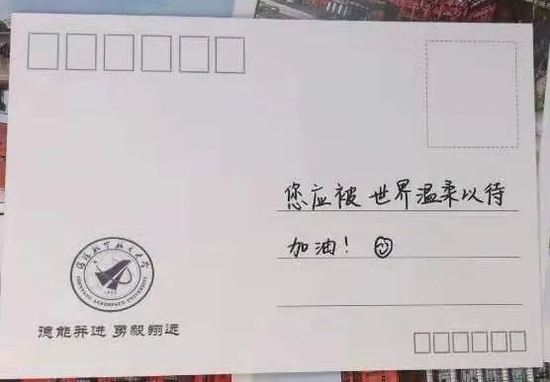 您应被世界温柔以待
加油!
沈阳航空航天大学
SHENYANG AEROSPACE UNIVERSITY
1952
德能并进 勇毅翔远